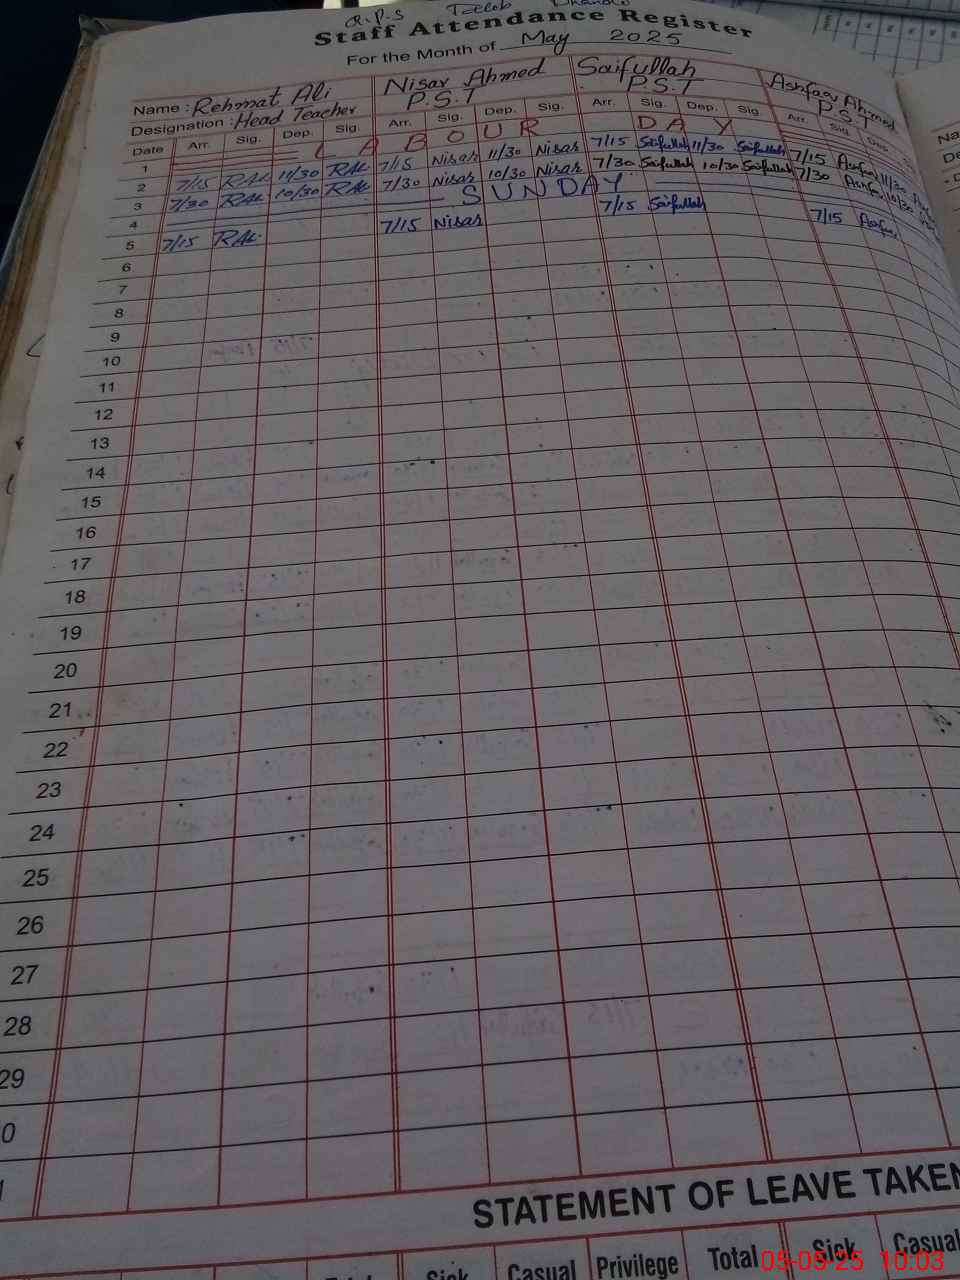 Staff Attendance Register
For the Month of May 2025
Name : Rehmat Ali Nisar Ahmed Saifullah Ashfaq Ahmed
Designation : Head Teacher P.S.T P.S.T P.S.T
Date Arr. Sig. Dep. Sig. Arr. Sig. Dep. Sig. Arr. Sig. Dep. Sig. Arr. Sig. Dep.
1 LABOUR DAY
2 7/15 RAL 11/30 RAL 7/15 Nisar 11/30 Nisar 7/15 Saifullah 11/30 Saifullah 7/15 11/30
3 7/30 RAL 10/30 RAL 7/30 Nisar 10/30 Nisar 7/30 Saifullah 10/30 Saifullah 7/30 10/30
4 SUNDAY
5 7/15 RAL 7/15 Nisar 7/15 Saifullah 7/15
6
7
8
9
10
11
12
13
14
15
16
17
18
19
20
21
22
23
24
25
26
27
28
29
0
1
STATEMENT OF LEAVE TAKEN
Sick Casual Privilege Total Sick Casual
05-05-25 10:03